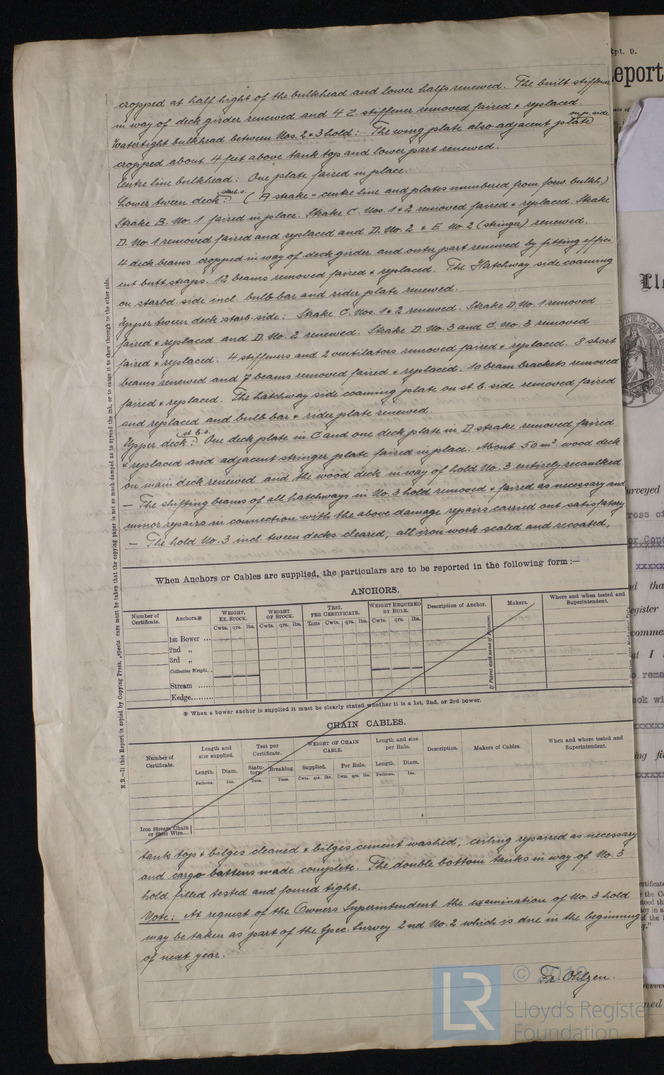 cropped at half hight of the bulkhead and lower halfs renewed. The built stiffener
in way of deck girder renewed and 4 Z stiffener removed faired & replaced.
Watertight bulkhead between Nos. 2 & 3 hold: - The wing plate also adjacent plate
cropped about 4 feet above tank top and lower part renewed.
Centre line bulkhead: One plate faired in place.
Lower tween deck: (A strake = centre line and plates numbered from forw. bulkh.)
Strake B. No. 1 faired in place. Strake C. Nos. 1 & 2 removed faired & replaced. Strake
D. No. 1 removed faired and replaced and D. No. 2 & E No. 2 (stringer) renewed.
4 deck beams cropped in way of deck girder and outer part renewed by fitting effici
ent butt straps. 12 beams removed faired & replaced. The Hatchway side coaming
on starbd. side incl. bulb bar and rider plate renewed.
Upper tween deck starb. side: Strake C. Nos. 1 & 2 renewed. Strake D. No. 1 removed
faired & replaced and D. No. 2 renewed. Strake D. No. 3 and C. No. 3 removed
faired & replaced. 4 stiffeners and 2 ventilators removed faired & replaced. 3 short
beams renewed and 7 beams removed faired & replaced. 10 beam brackets removed
faired & replaced. The hatchway side coaming plate on st. b. side removed faired
and replaced and bulb bar & rider plate renewed.
Upper deck: One deck plate in C and one deck plate in D strake removed faired
& replaced and adjacent stringer plate faired in place. About 50 m² wood deck
on main deck renewed and the wood deck in way of hold No. 3 entirely recaulked
— The shifting beams of all hatchways in No. 3 hold removed & faired as necessary and
minor repairs in connection with the above damage repairs carried out satisfactory
— The hold No. 3 incl. tween decks cleared, all iron work scaled and recoated,
When Anchors or Cables are supplied, the particulars are to be reported in the following form :—
ANCHORS.
Number of Certificate. Anchors.* WEIGHT, EX. STOCK. WEIGHT OF STOCK. TEST, PER CERTIFICATE. WEIGHT REQUIRED BY RULE. Description of Anchor. Makers. Where and when tested and Superintendent.
Cwts. qrs. lbs. Cwts. qrs. lbs. Tons Cwts. qrs. lbs. Cwts. qrs. lbs.
1st Bower ...
2nd „
3rd „
Collective Weight.
Stream ......
Kedge........
* When a bower anchor is supplied it must be clearly stated whether it is a 1st, 2nd, or 3rd bower.
CHAIN CABLES.
Number of Certificate. Length and size supplied. Test per Certificate. WEIGHT OF CHAIN CABLE. Length and size per Rule. Description. Makers of Cables. When and where tested and Superintendent.
Length. Diam. Statutory. Breaking. Supplied. Per Rule. Length. Diam.
Fathoms. Ins. Tons. Tons. Cwts. qrs. lbs. Cwts. qrs. lbs. Fathoms. Ins.
Iron Stream Chain
or Steel Wire...
tank top & bilges cleaned & bilges cement washed, ceiling repaired as necessary
and cargo battens made complete. The double bottom tanks in way of No. 3
hold filled tested and found tight.
Note: At request of the Owners Superintendent the examination of No. 3 hold
may be taken as part of the Spec. Survey 2nd No. 2 which is due in the beginning
of next year.
LR
Lloyd's Register
Foundation